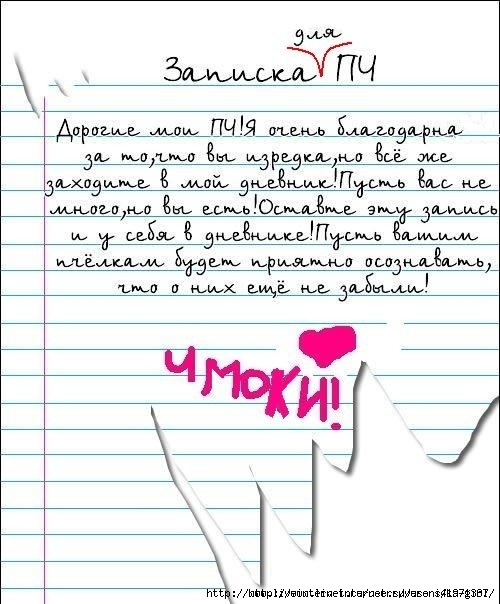 Записка для ПЧ
Дорогие мои ПЧ!Я очень благодарна
за то,что вы изредка,но всё же
заходите в мой дневник!Пусть вас не
много,но вы есть!Оставте эту запись
и у себя в дневнике!Пусть вашим
пчёлкам будет приятно осознавать,
что о них ещё не забыли!
ЧМОКИ!